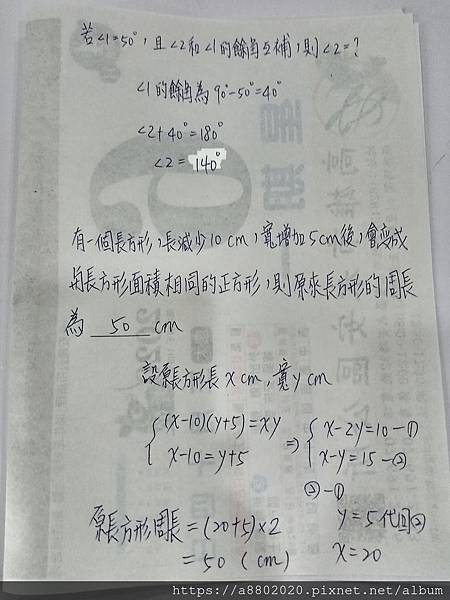 若∠1=50°,且∠2和∠1的餘角互補,則∠2=?
∠1的餘角為90°-50°=40°
∠2+40°=180°
∠2=140°
有一個長方形,長減少10cm,寬增加5cm後,會变成
與長方形面積相同的正方形,則原來長方形的周長
為 50 cm
設原長方形長xcm,寬ycm
(x-10)(y+5)=xy ⇒ x-2y=10-①
x-10=y+5 x-y=15-②
②-①
原長方形周長=(20+5)×2 y=5代回②
=50(cm) x=20
https://a8802020.pixnet.net/album